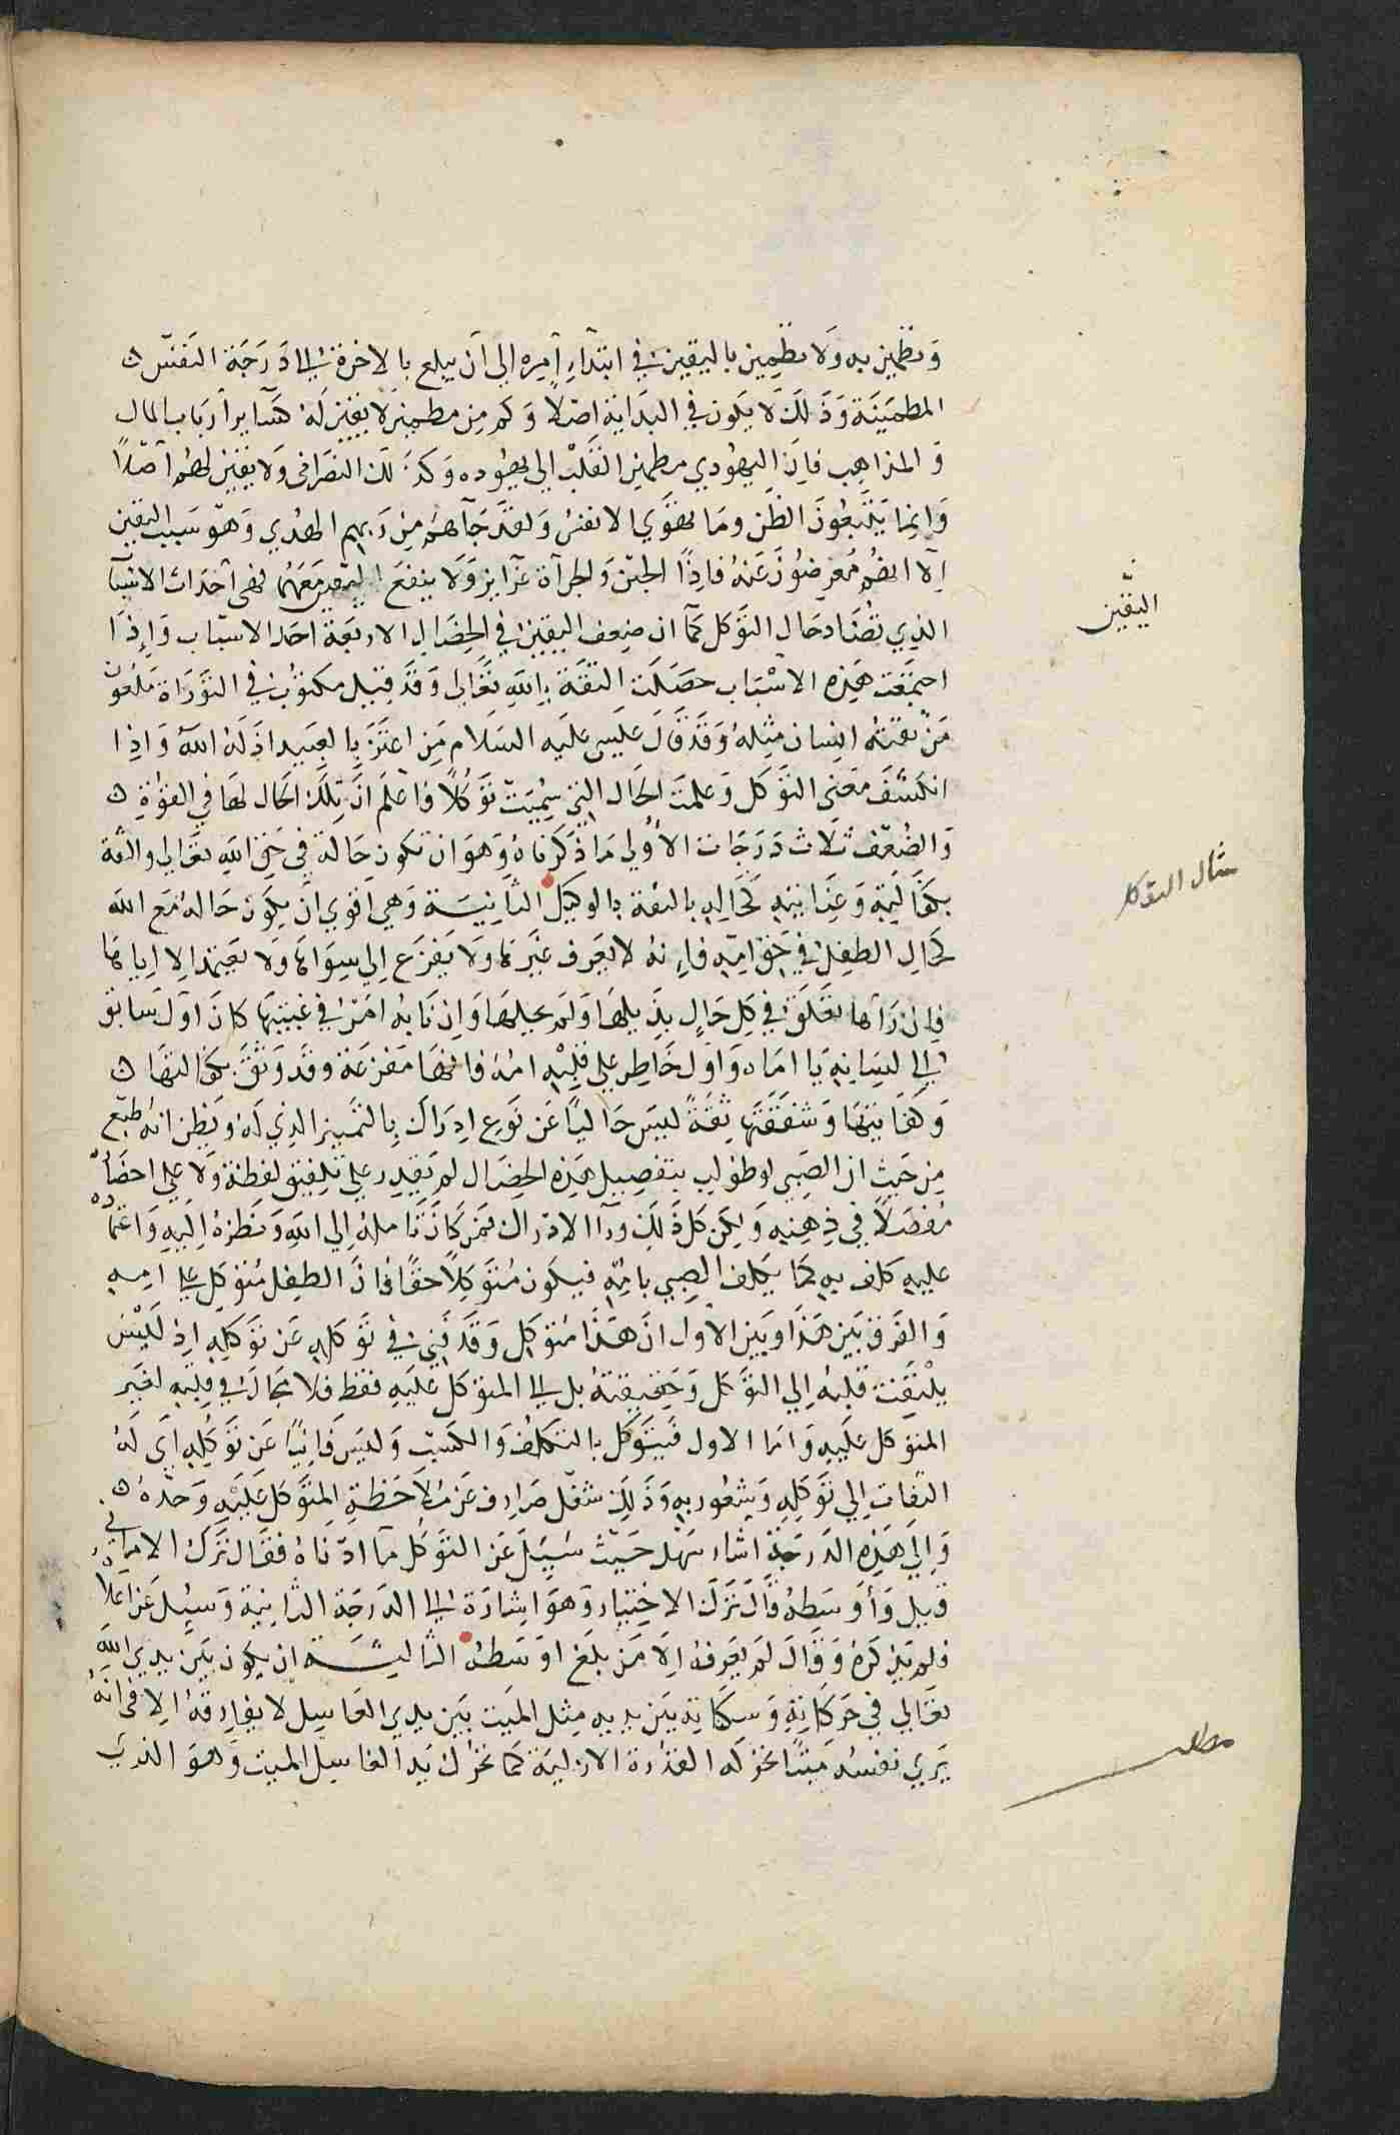 وتطمين به ولا تطمين باليقين في ابتداء امره الى ان يبلغ بالاخرة الى درجة النفس
المطمئنة وذلك لا يكون في البداية اصلا وكم من مطمين لا يقين له كساير ارباب الملل
والمذاهب فان اليهودي مطمين القلب الى يهوده وكذلك النصراني ولا يقين لهم اصلا
وانما يتبعون الظن وما تهوي الانفس ولقد جآهم من ربهم الهدي وهو سبب اليقين
الا انهم معرضون عنه فاذا الجبن والجراة غرايز ولا ينفع اليقين معهما فهي احدات الاسباب
الذي تضاد حال التوكل كما ان ضعف اليقين في الخصال الاربعة احد الاسباب واذا
اجتمعت هذه الاسباب حصلت الثقة بالله تعالى وقد قيل مكتوب في التوراة ملعون
من ثقته انسان مثله وقد قال عليس عليه السلام من اعتز بالعبيد اذله الله واذا
انكشف معنى التوكل وعلمت الحال التي سميت توكلا فاعلم ان تلك الحال لها في القوة
والضعف ثلاث درجات الاولى ما ذكرناه وهو ان تكون حاله في حق الله تعالى والثقة
بكفالته وعنايته كحاله بالثقة بالوكيل الثانية وهي اقوي ان يكون حاله مع الله
كحال الطفل في حق امه فانه لا يعرف غيرها ولا يفزع الى سواها ولا يعتمد الا اياها
فان رآها تعلق في كل حال بذيلها ولم يخلها وان نابه امر في غيبتها كان اول سابق
الى لسانه يا اماه واول خاطر على قلبه امه فانها مفزعه وقد وثق بكفالتها
وكفايتها وشفقتها ثقة ليس خاليا عن نوع ادراك بالتميز الذي له ويظن انه طبع
من حيث ان الصبي لو طولب بتفصيل هذه الخصال لم يقدر على تلفيق لفظة ولا على احضاره
مفصلا في ذهنه ولكن كل ذلك ورآ الادراك فمن كان تامله الى الله ونظره اليه واعتماده
عليه كلف به كما يكلف الصبي بامه فيكون متوكلا حقا فان الطفل متوكل على امه
والفرق بين هذا وبين الاول ان هذا متوكل وقد فني في توكله عن توكله اذ ليس
يلتفت قلبه الى التوكل وحقيقته بل الى المتوكل عليه فقط فلا مجال في قلبه لغير
المتوكل عليه واما الاول فيتوكل بالتكلف والكسب وليس فانيا عن توكله اي له
التفات الى توكله وشعور به وذلك شغل صارف عن ملاحظة المتوكل عليه وحده
والى هذه الدرجة اشار سهل حيث سيل عن التوكل ما ادناه فقال ترك الاماني
قيل واوسطه قال ترك الاختيار وهو اشارة الى الدرجة الثانية وسيل عن اعلاه
فلم يذكره وقال لم يعرفه الا من بلغ اوسطه الثالثة ان يكون بين يدي الله
تعالى في حركاته وسكناته بين يديه مثل الميت بين يدي الغاسل لا يفارقه الا في انه
يري نفسه ميتا تحركه القدرة الازلية كما تحرك يد الغاسل الميت وهو الذي
اليقين
مثال التوكل
مطلب